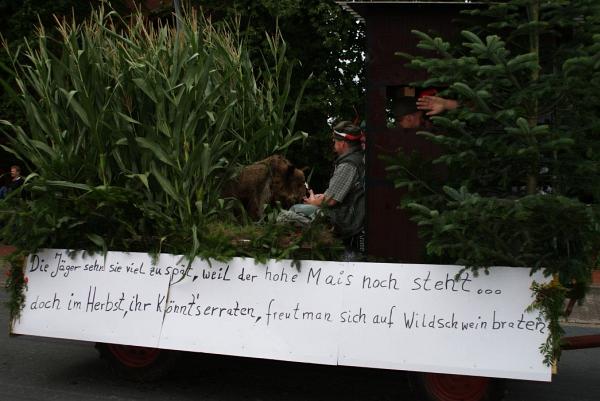 Die Jäger sehn sie viel zu spät, weil der hohe Mais noch steht...
doch im Herbst, ihr Könnt's erraten, freut man sich auf Wildschweinbraten